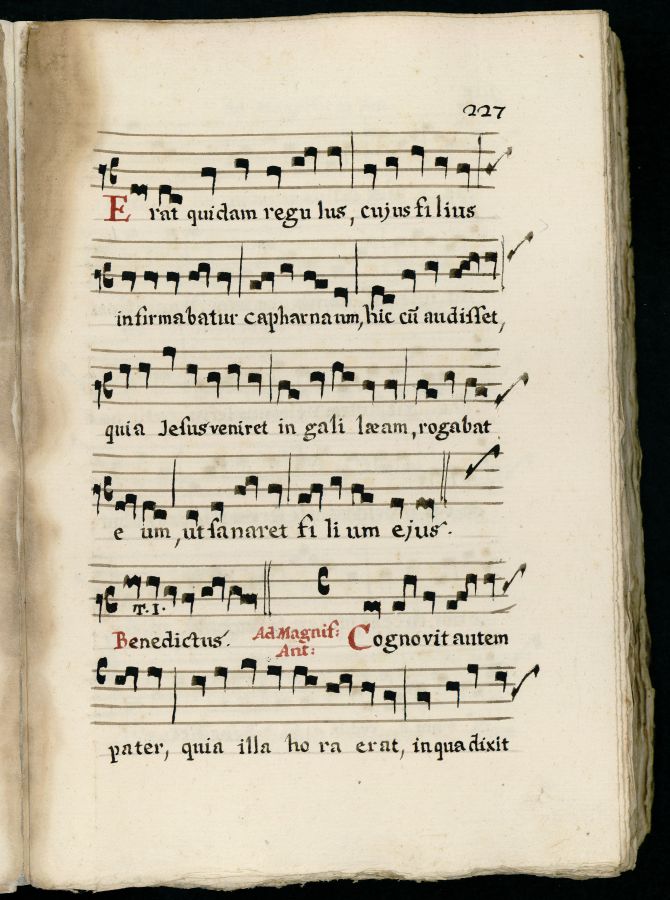 227
Erat quidam regu lus, cujus fi lius
infirmabatur capharnaum, hic cū audisset,
quia Jesus veniret in gali læam, rogabat
e um, ut sanaret fi li um ejus.
T. I.
Benedictus. Ad Magnif: Ant: Cognovit autem
pater, quia illa ho ra erat, in qua dixit